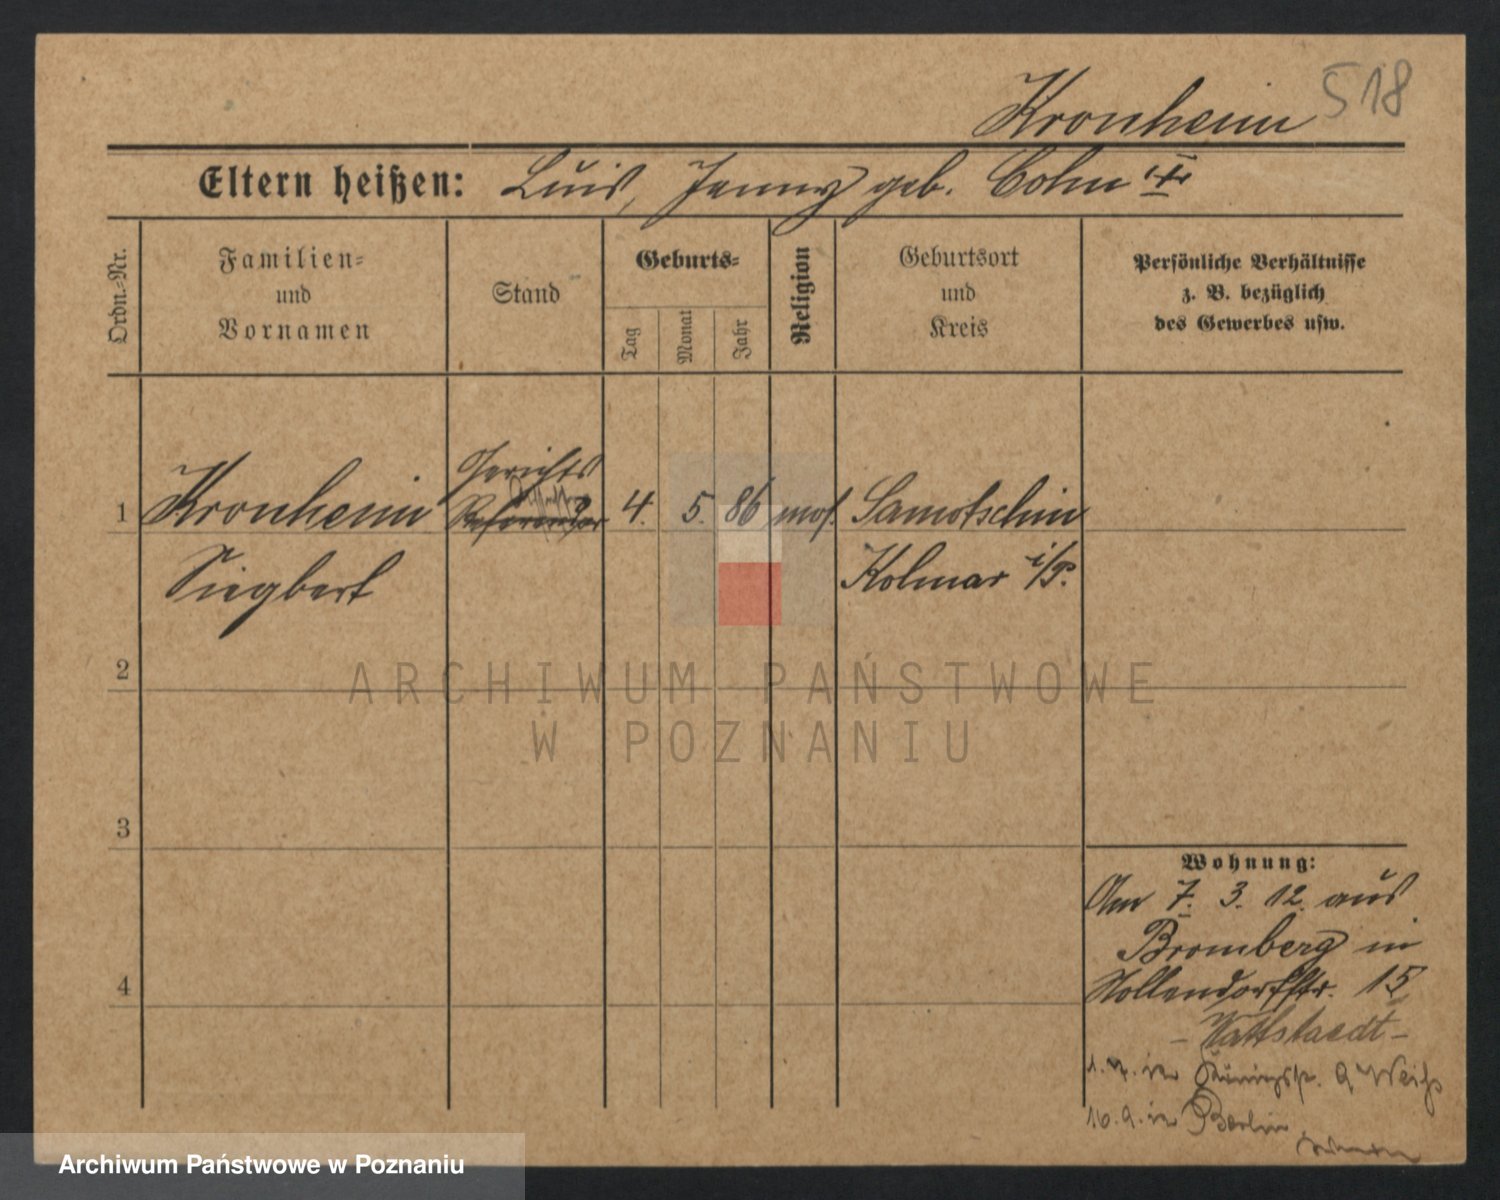 Kronheim 518
Eltern heißen: Luis, Jenny geb. Cohn
Ordn.=Nr.
Familien=
und
Vornamen
Stand
Geburts=
Tag
Monat
Jahr
Religion
Geburtsort
und
Kreis
Persönliche Verhältnisse
z. B. bezüglich
des Gewerbes usw.
1 Kronheim Gerichts Referendar 4. 5. 86 mos. Samotschin
Siegbert Kolmar i/P.
2
3
4
Wohnung:
Am 7. 3. 12. aus
Bromberg in
Nollendorfstr. 15
1. 7. in Königspl. 9 Weiß
16. 9. in Berlin
ARCHIWUM PAŃSTWOWE
W POZNANIU
Archiwum Państwowe w Poznaniu